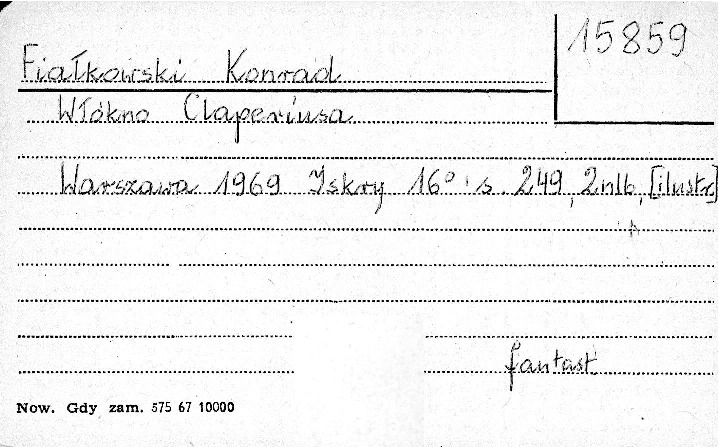 15859
Fiałkowski Konrad
Włókno Claperiusa
Warszawa 1969 Iskry 16° s. 249, 2nlb, [ilustr]
fantast
Now. Gdy zam. 575 67 10000